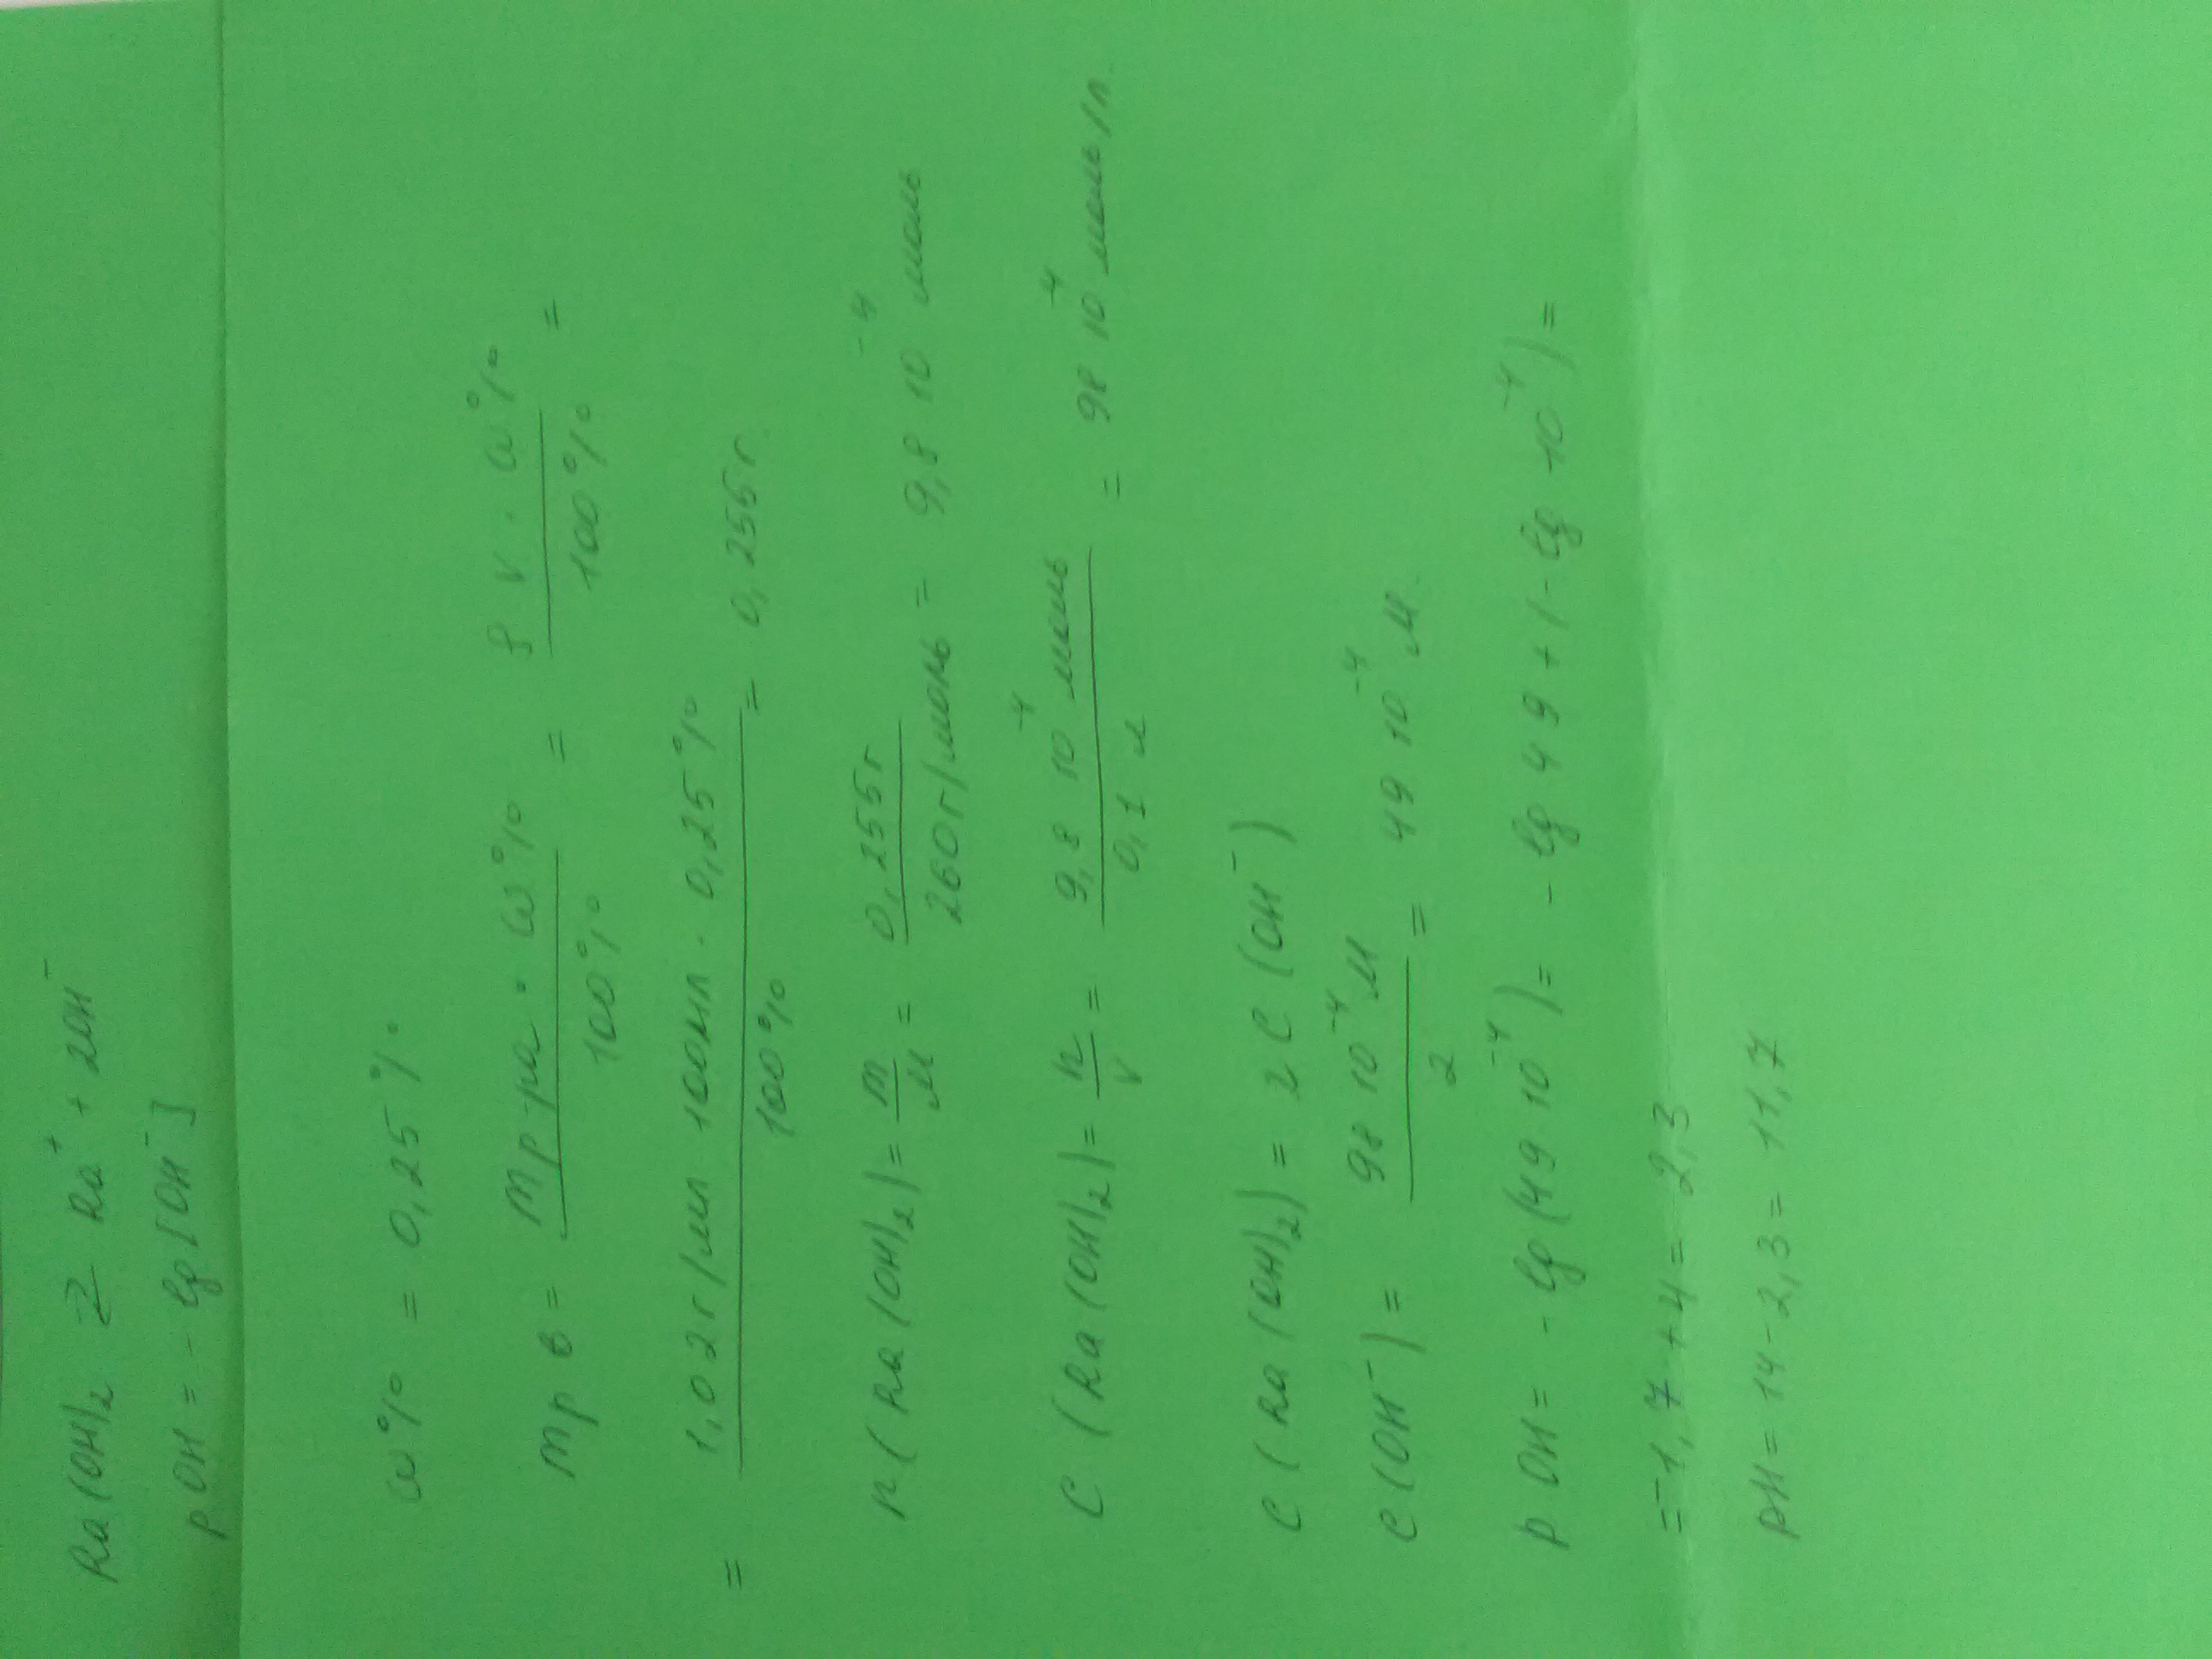 Ra(OH)₂ ⇄ Ra⁺ + 2OH⁻
pOH = - lg[OH⁻]
ω% = 0,25%
mр в = mр-ра · ω% / 100% = ρ V · ω% / 100% =
= 1,02 г/мл 100мл · 0,25% / 100% = 0,255г.
n(Ra(OH)₂) = m / M = 0,255г / 260г/моль = 9,8 10⁻⁴ моль
C (Ra(OH)₂) = n / V = 9,8 10⁻⁴ моль / 0,1 л = 98 10⁻⁴ моль/л.
C(Ra(OH)₂) = 2 C(OH⁻)
C(OH⁻) = 98 10⁻⁴ М / 2 = 49 10⁻⁴ М.
pOH = - lg(49 10⁻⁴) = - lg 49 + (- lg 10⁻⁴) =
= -1,7 + 4 = 2,3
pH = 14 - 2,3 = 11,7